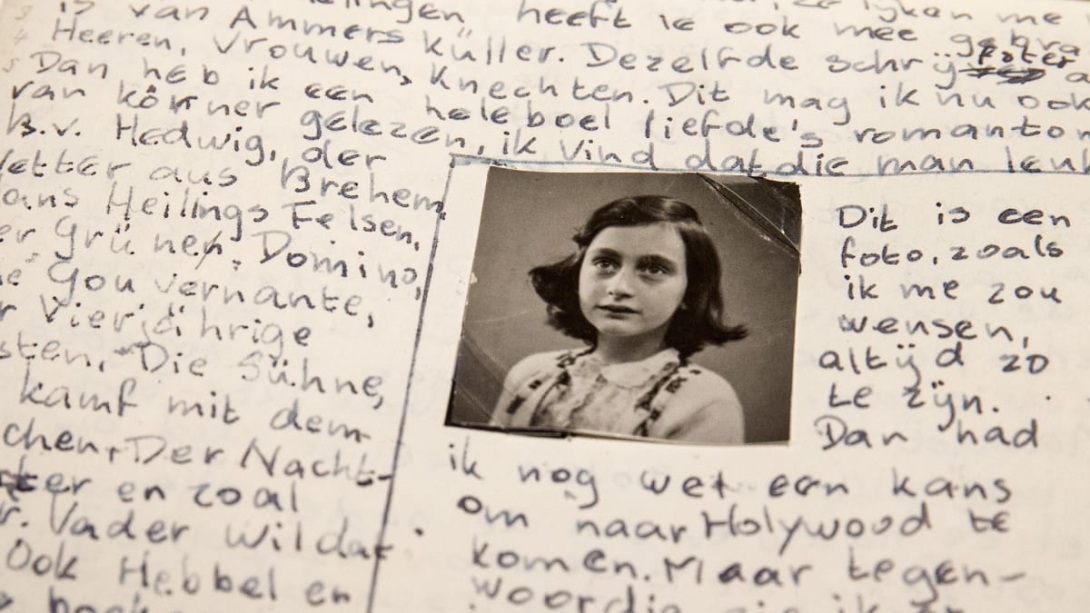 is van Ammers Küller. Dezelfde schrijfster
heeft ie ook mee
Heeren, Vrouwen, Knechten. Dit mag ik nu ook
Dan heb ik een heleboel liefde's romanton
van körner gelezen, ik vind dat die man leuk
B.v. Hedwig, der
Vetter aus Brehem,
ans Heilings Felsen,
er Grünen, Domino,
Gouvernante,
Vierjährige
sten, Die Sühne,
kamf mit dem
chen, Der Nacht-
ter en zoal
r. Vader Wildat
Ook Hebbel en
Dit is een
foto, zoals
ik me zou
wensen,
altijd zo
te zijn.
Dan had
ik nog wet een kans
om naar Holywood te
komen. Maar tegen-
woordig